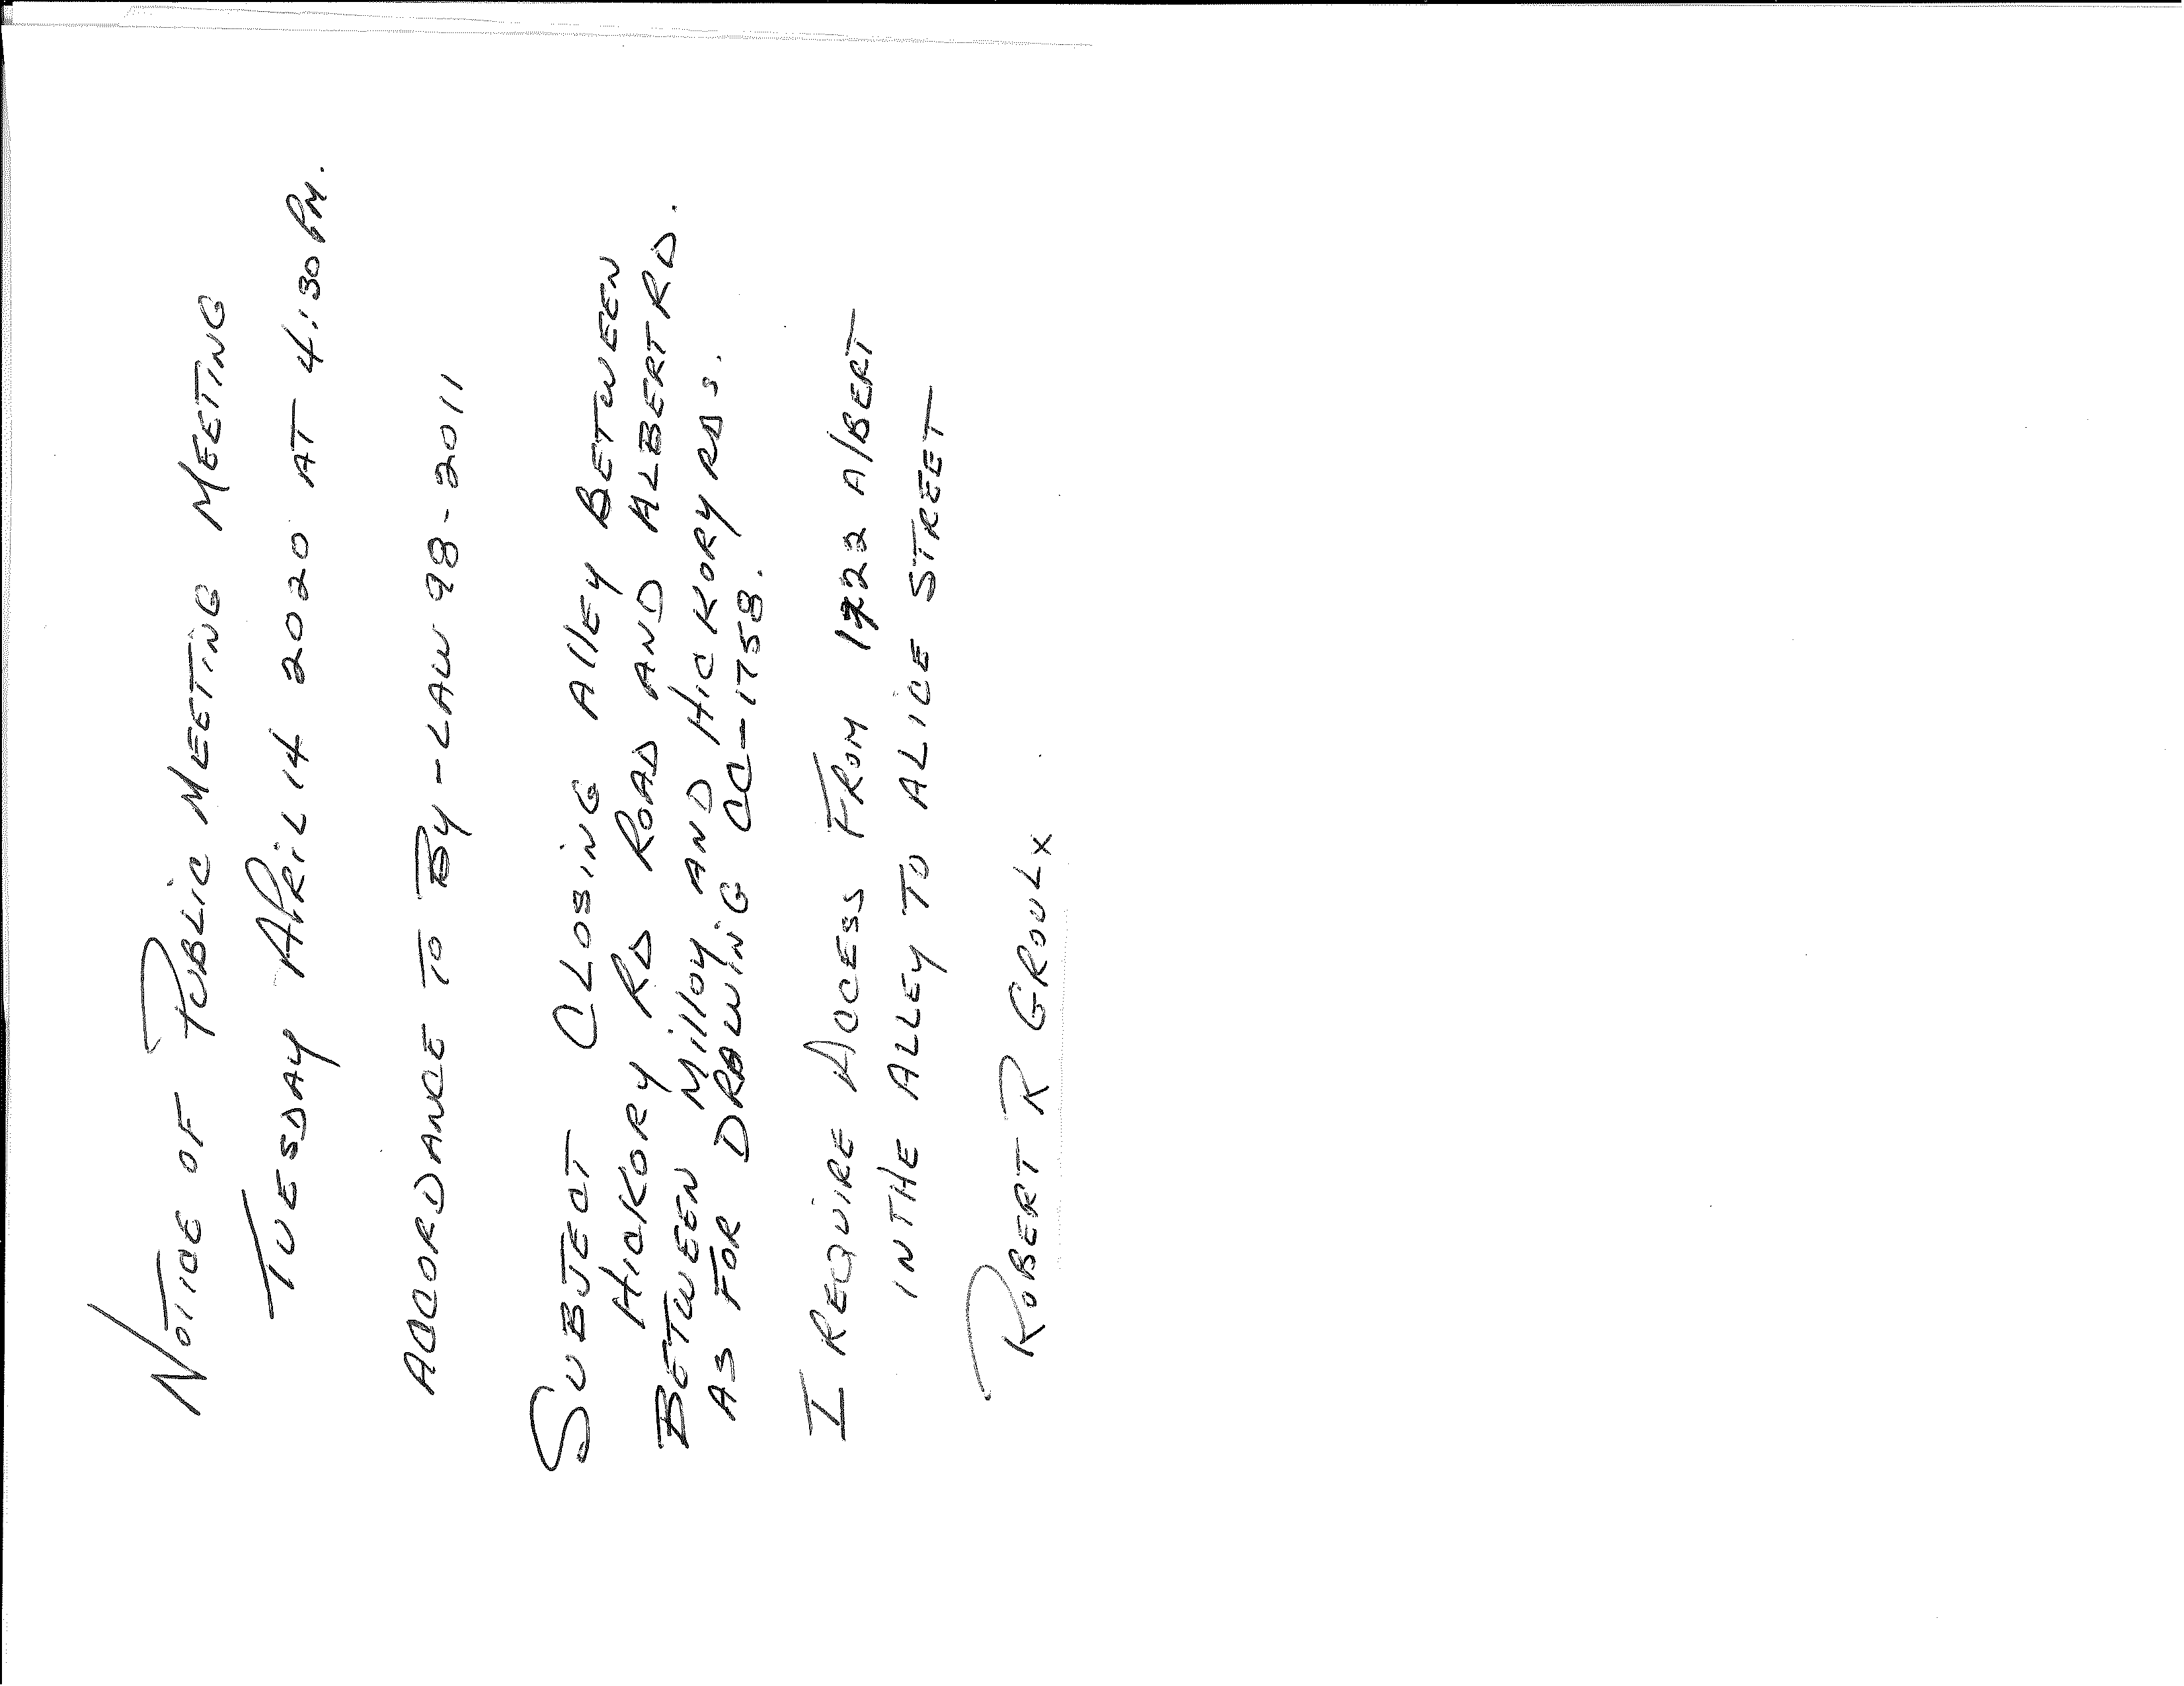 NOTICE OF PUBLIC MEETING MEETING
TUESDAY APRIL 14 2020 AT 4:30 PM.
ACCORDANCE TO BY-LAW 98-2011
SUBJECT CLOSING AllEY BETWEEN
HICKORY RD ROAD AND ALBERT RD.
BETWEEN Milloy AND HICKORY RDS.
AS FOR DRAWING CC-1758.
I REQUIRE ACCESS FROM 1722 AlBERT
IN THE ALLEY TO ALICE STREET
ROBERT R GROULX